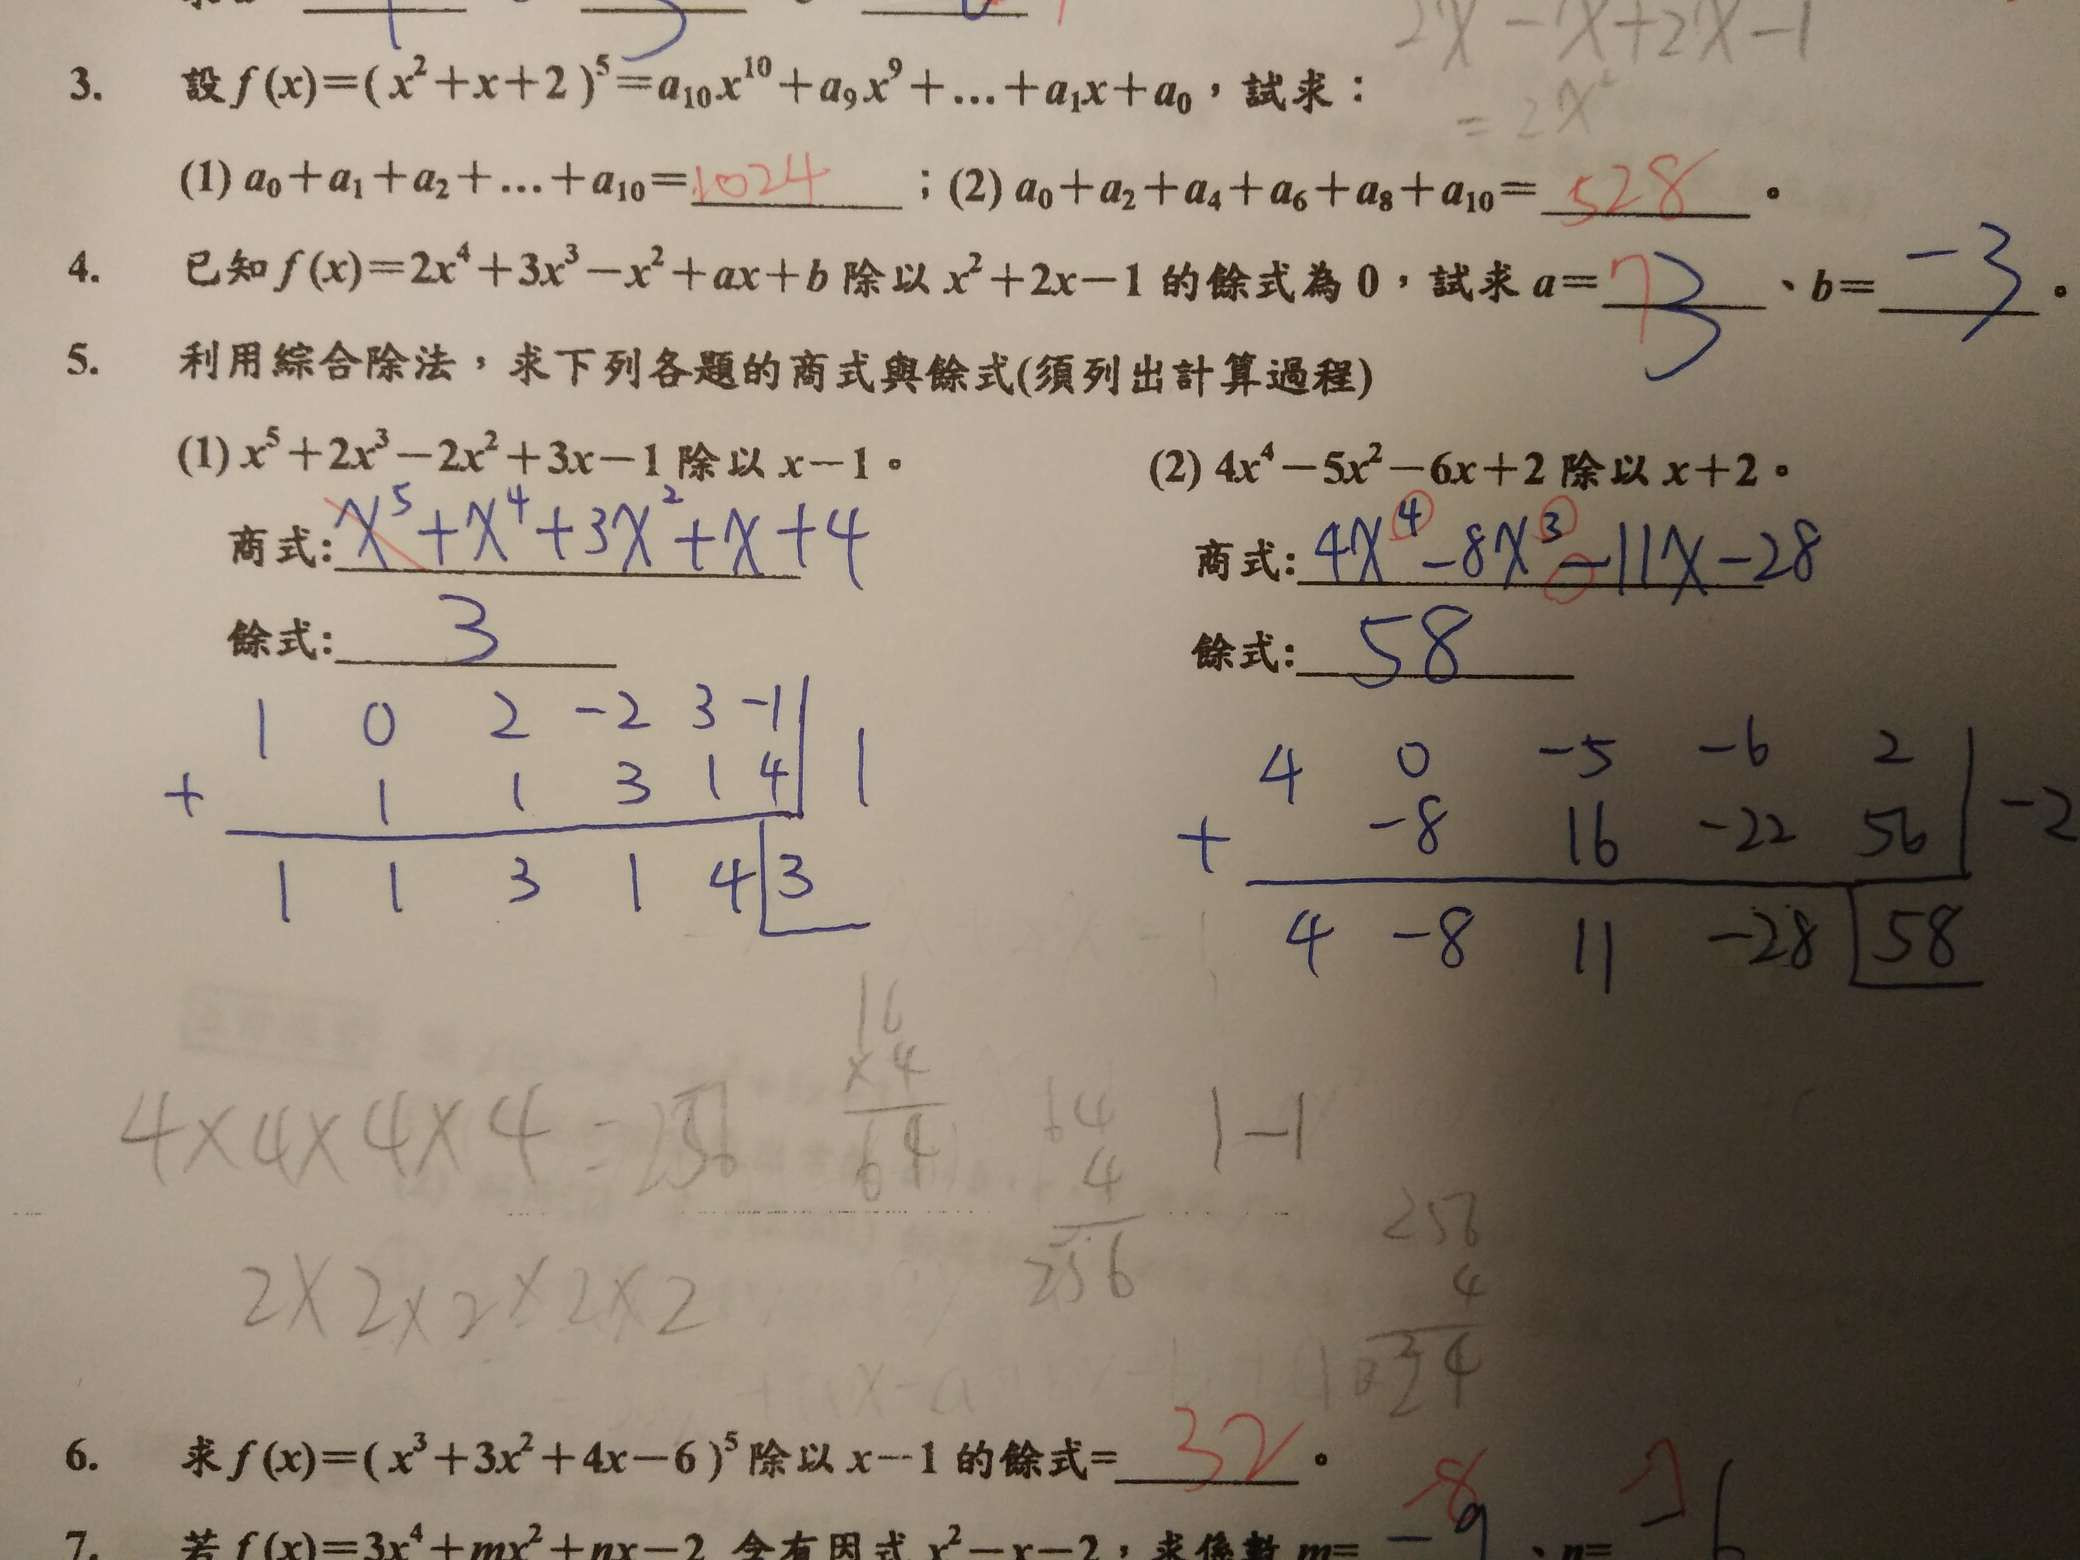 2x-x+2x-1
=2x²
3. 設f(x)=(x²+x+2)⁵=a₁₀x¹⁰+a₉x⁹+…+a₁x+a₀，試求：
(1) a₀+a₁+a₂+…+a₁₀=1024；(2) a₀+a₂+a₄+a₆+a₈+a₁₀=528。
4. 已知f(x)=2x⁴+3x³-x²+ax+b除以x²+2x-1的餘式為0，試求a=7 3、b=-3。
5. 利用綜合除法，求下列各題的商式與餘式(須列出計算過程)
(1) x⁵+2x³-2x²+3x-1除以x-1。 (2) 4x⁴-5x²-6x+2除以x+2。
商式:x⁵+x⁴+3x²+x+4 商式:4x⁴-8x³-11x-28
餘式:3 餘式:58
1 0 2 -2 3 -1 1 4 0 -5 -6 2 -2
+ 1 1 3 1 4 + -8 16 -22 56
1 1 3 1 4 3 4 -8 11 -28 58
4×4×4×4=256 16 ×4 64 64 4 256 1-1
2×2×2×2×2 256 4 1024
6. 求f(x)=(x³+3x²+4x-6)⁵除以x-1的餘式=32。
7. 若f(x)=3x⁴+mx²+nx-2 含有因式x²-x-2，求係數m= -8 -9、n= -7 6